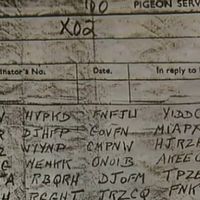 100 PIGEON SERV
X02
inator's No. Date. In reply to
HVPKD FNFJU YIDDC
R DJHFP GOVFN MIAPX
VIYNP CMPNW HJRZH
G NEMKK ONOIB AKEEC
A RBQRH DJOFM TPZE
RGGHT JRZCQ FNK